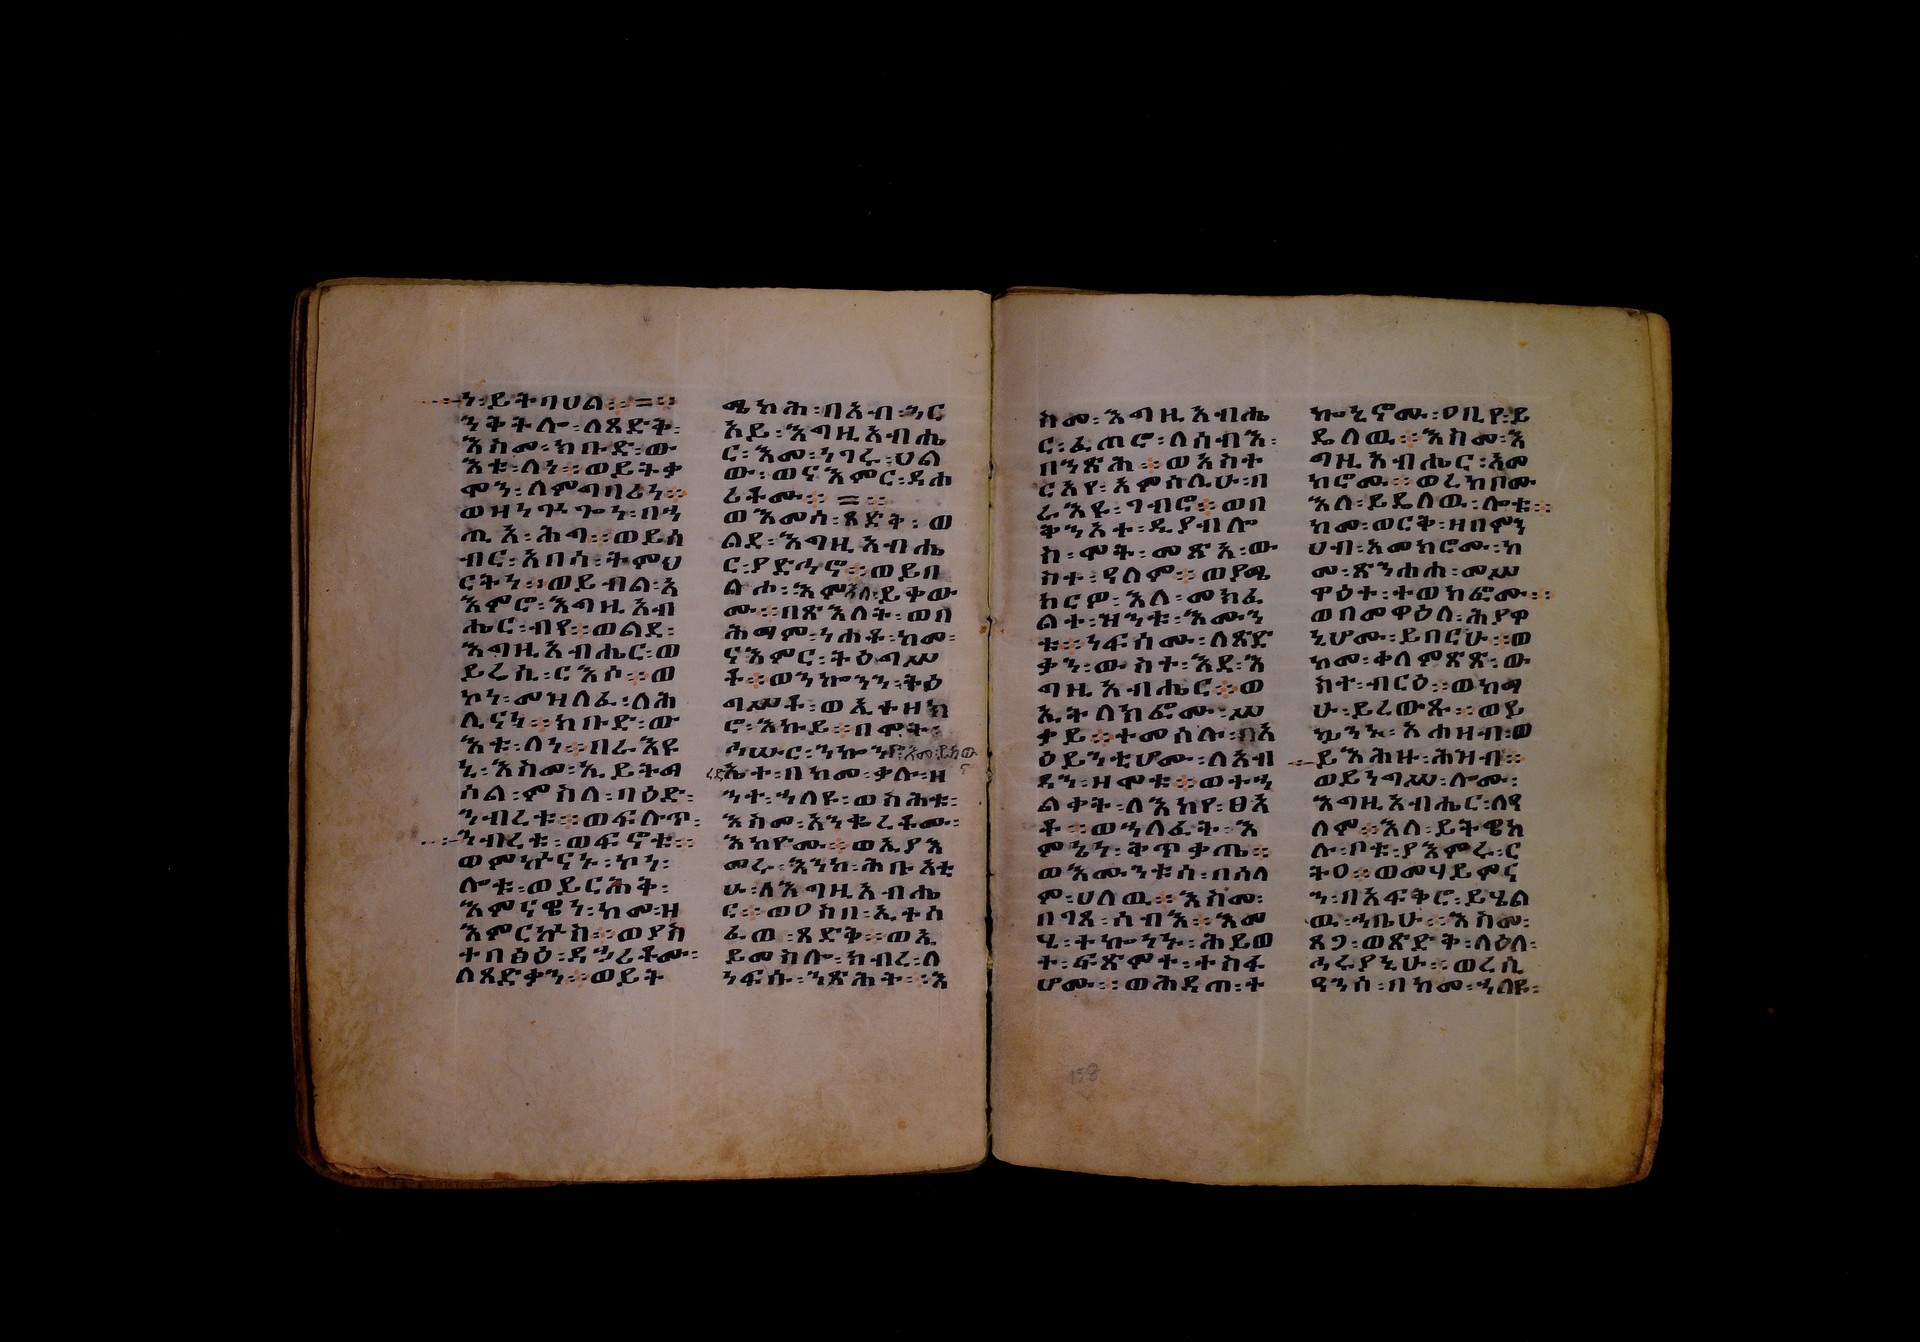 ን፡ይትባሀል፨=፨
ንቅትሎ፡ለጻድቅ፡
እስመ፡ክቡድ፡ው
እቱ፡ለነ፨ወይትቃ
ሞን፡ለምግባሪነ፨
ወዘነጐጕን፡በኃ
ጢአ፡ሕግ፨ወይሰ
ብር፡አበሳ፡ትምህ
ርትነ፨ወይብል፡አ
እምሮ፡እግዚአብ
ሔር፡ብየ፨ወልደ፡
እግዚአብሔር፡ወ
ይረሲ፡ርእሶ፨ወ
ኮነ፡መዝለፈ፡ለሕ
ሊናነ፨ክቡድ፡ው
እቱ፡ለነ፨በራእዩ
ኒ፡እስመ፡ኢይትማ
ሰል፡ምስለ፡ባዕድ፡
ንብረቱ፨ወፍሉጥ፡
ንብረቱ፡ወፍኖቱ፨
ወምኑናነ፡ኮነ፡
ሎቱ፡ወይርሕቅ፡
እምናዌነ፡ከመ፡ዘ
እምርኵስ፨ወያስ
ተበፅዕ፡ዳኅሪቶሙ፡
ለጻድቃን፨ወይት
ሜካሕ፡በአብ፡ንር
አይ፡እግዚአብሔ
ር፡እመ፡ነገሩ፡ህል
ው፡ወናእምር፡ዳሐ
ሪቶሙ፨=፨
ወእመሰ፡ጻድቅ፡ወ
ልደ፡እግዚአብሔ
ር፡ያድኅኖ፨ወይበ
ልሖ፡እምእለ፡ይቀው
ሙ፨በጽእለት፡ወበ
ሕማም፡ነሐቶ፡ከመ፡
ናእምር፡ትዕግሥ
ቶ፨ወንኰንን፡ትዕ
ግሥቶ፡ወኢተዘከ
ሮ፡እኩይ፨በሞት፡
ኅሡር፡
በከመ፡ቃሉ፡ዘ
ንተ፡ኀለዩ፡ወስሕቱ፡
እስመ፡አንቄረቶሙ፡
እከዮሙ፨ወኢያእ
መሩ፡እንከ፡ሕቡአቲ
ሁ፡ለእግዚአብሔ
ር፨ወዐስበ፡ኢተሰ
ፈወ፡ጻድቅ፨ወኢ
ይመስሎ፡ክብረ፡ለ
ነፍሱ፡ንጽሕት፨እ
ስመ፡እግዚአብሔ
ር፡ፈጠሮ፡ለሰብእ፡
በንጽሕ፨ወአስተ
ርአየ፡አምሳሊሁ፡በ
ራእዩ፡ገብሮ፨ወበ
ቅንአተ፡ዲያብሎ
ስ፡ሞት፡መጽአ፡ው
ስተ፡ዓለም፨ወያሜ
ክርዎ፡እለ፡መክፈ
ልተ፡ዝንቱ፡እሙን
ቱ፨ነፍሰሙ፡ለጻድ
ቃን፡ውስተ፡እደ፡እ
ግዚአብሔር፨ወ
ኢትለክፎሙ፡ሥ
ቃይ፨ተመሰሉ፡በአ
ዕይንቲሆሙ፡ለአብ
ዳን፡ዘሞቱ፨ወተኈ
ልቀት፡ለእከየ፡ፀአ
ቶ፨ወኀለፈት፡እ
ምኔነ፡ቅጥቃጤ፨
ወእሙንቱሰ፡በሰላ
ም፡ሀለዉ፨እስመ፡
በገጸ፡ሰብእ፨እመ
ሂ፡ተኰነኑ፡ሕይወ
ተ፡ፍጽሞተ፡ተስፋ
ሆሙ፨ወሕዳጠ፡ተ
ኰኒኖሙ፡ዐቢየ፡ይ
ዴለዉ፨እስመ፡እ
ግዚአብሔር፡አመ
ከሮሙ፨ወረከቦሙ
እለ፡ይዴለዉ፡ሎቱ፨
ከመ፡ወርቅ፡ዘበምን
ሀብ፡አመከሮሙ፡ከ
መ፡ጽንሐሐ፡መሥ
ዋዕተ፡ተወክፎሙ፨
ወበመዋዕለ፡ሕያዋ
ኒሆሙ፡ይበርሁ፨ወ
ከመ፡ቀለምጽጽ፡ው
ስተ፡ብርዕ፨ወከማ
ሁ፡ይረውጹ፨ወይ
ኴንኑ፡አሕዛብ፡ወ
ይእሕዙ፡ሕዝብ፨
ወይነግሥ፡ሎሙ፡
እግዚአብሔር፡ለዓ
ለም፨እለ፡ይትዌከ
ሉ፡ቦቱ፡ያእምሩ፡ር
ትዐ፨ወመሃይምና
ን፡በአፍቅሮ፡ይሄል
ዉ፡ኀቤሁ፨እስመ፡
ጸጋ፡ወጽድቅ፡ላዕለ፡
ኅሩያኒሁ፨ወረሲ
ዓንሰ፡በከመ፡ኀለዩ፡
158